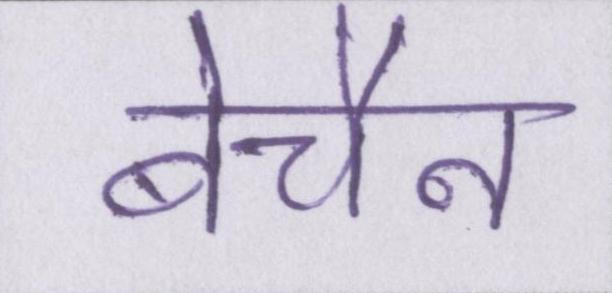 बेचैन